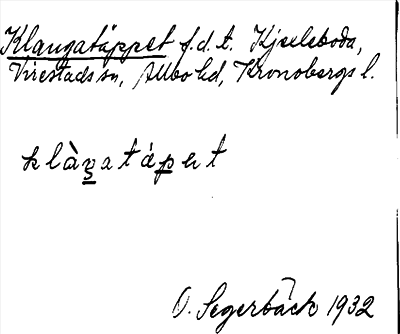 Klangatäppet f.d.t. Kjselsboda,
Virestads sn, Allbo hd, Kronobergs l.
klàŋatápet
O. Segerbäck 1932